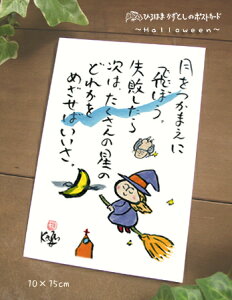 ひろはまかずとしのポストカード
～Halloween～
月をつかまえに
飛ぼう。
失敗したら
次は、たくさんの星の
どれかを
めざせばいいさ。
10×15cm